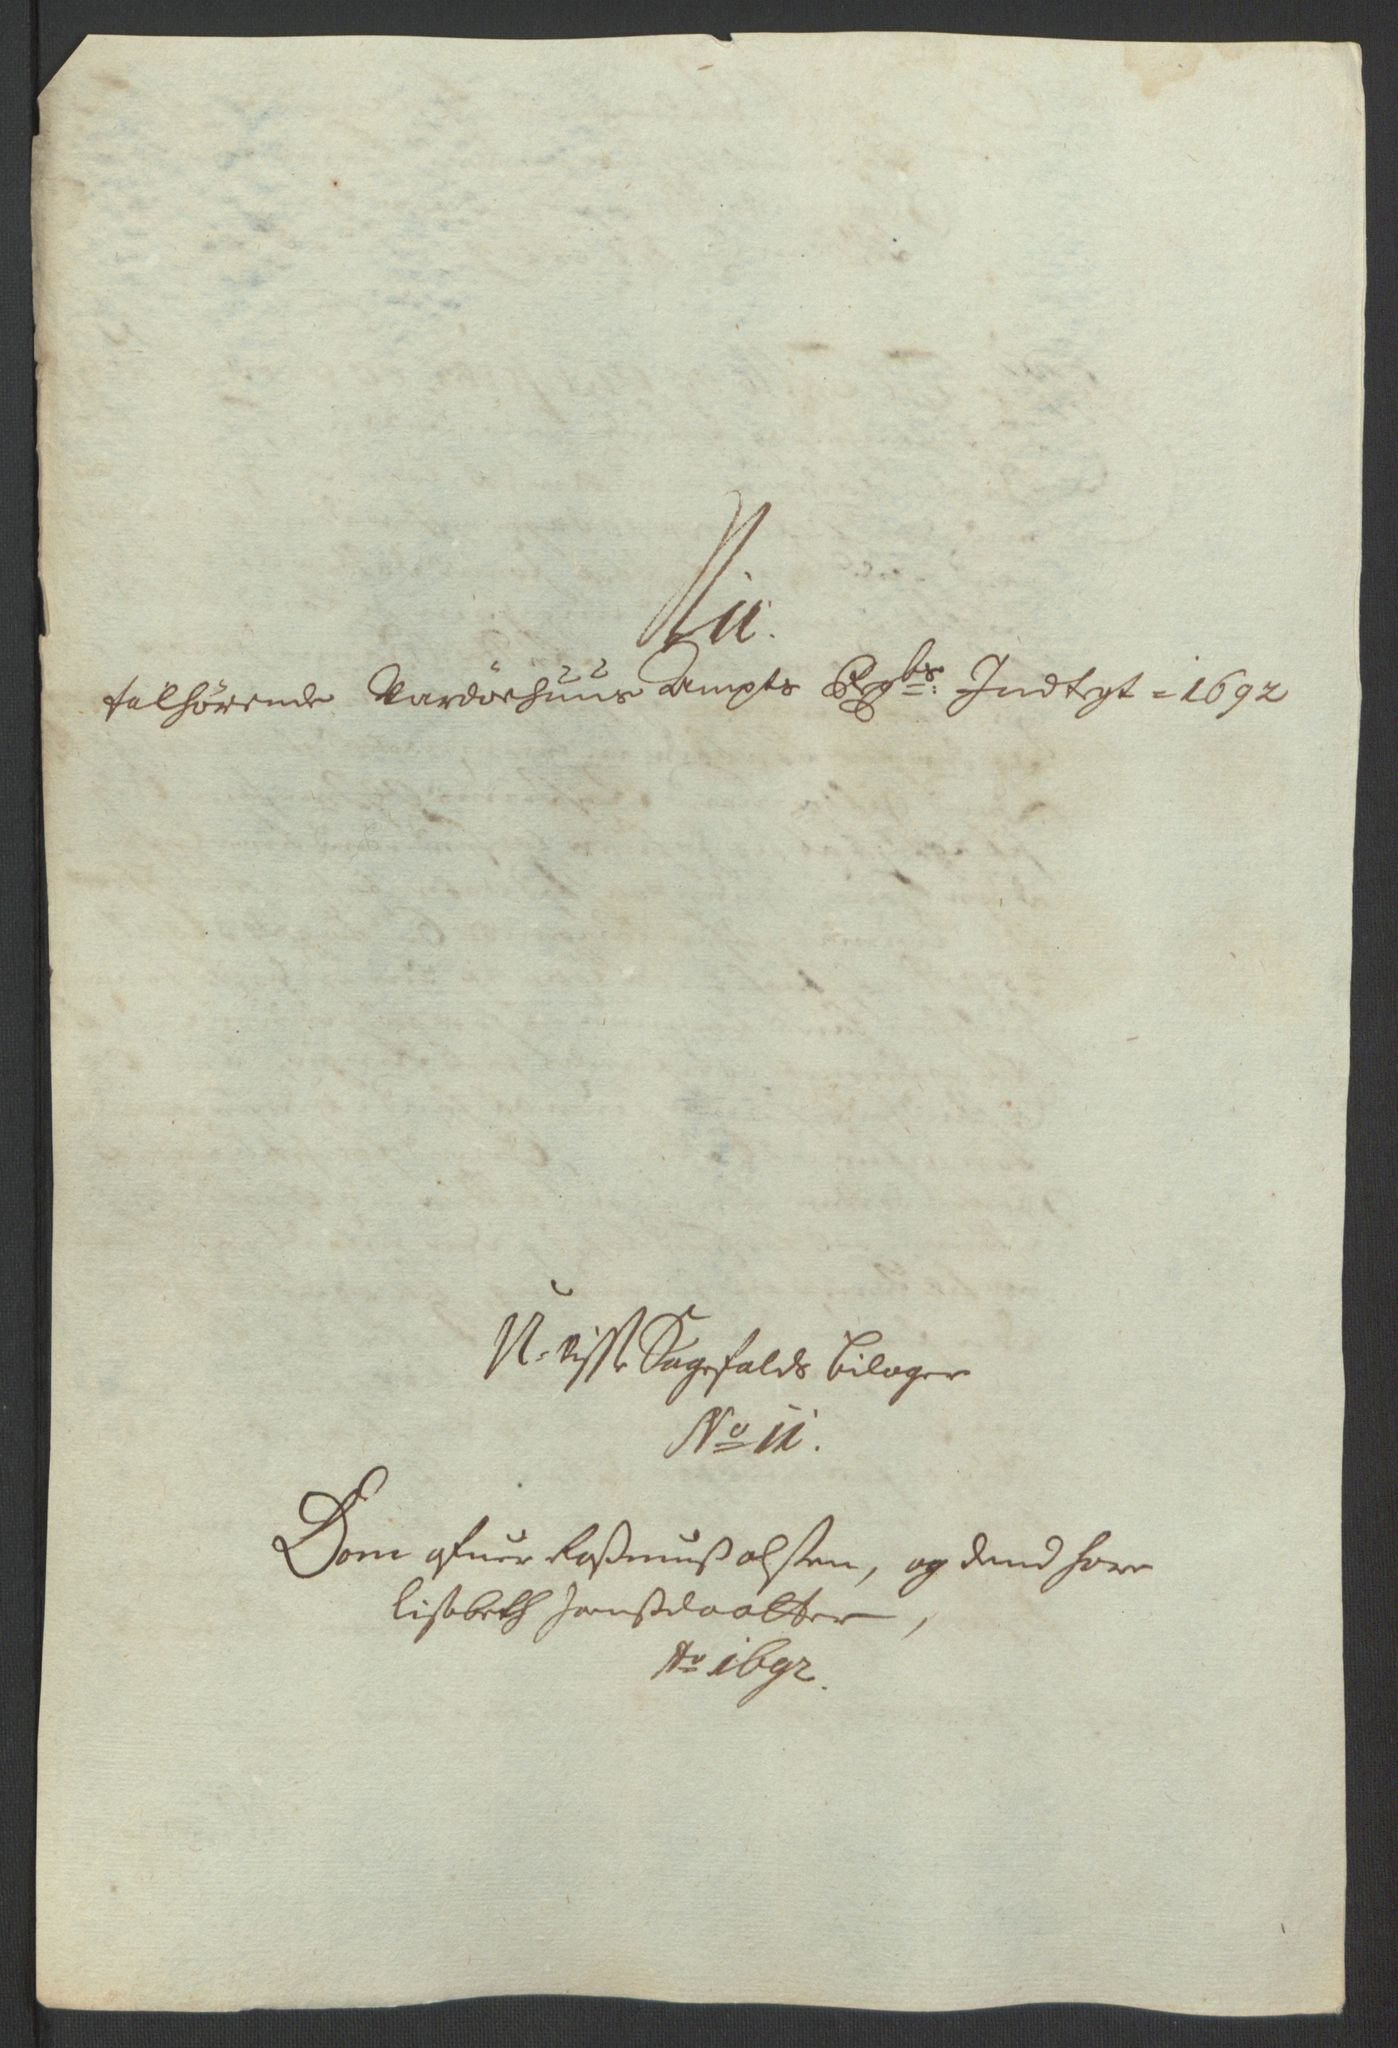 N 11.
tilhörende Vardöehuus Ampts Regbs: Indtegt = 1692
U-visse Sagefalds bilager
No 11.
Dom ofuer Rasmus olsten, og dend hore
lisebeth Jonsdaatter,
Ao 1692.